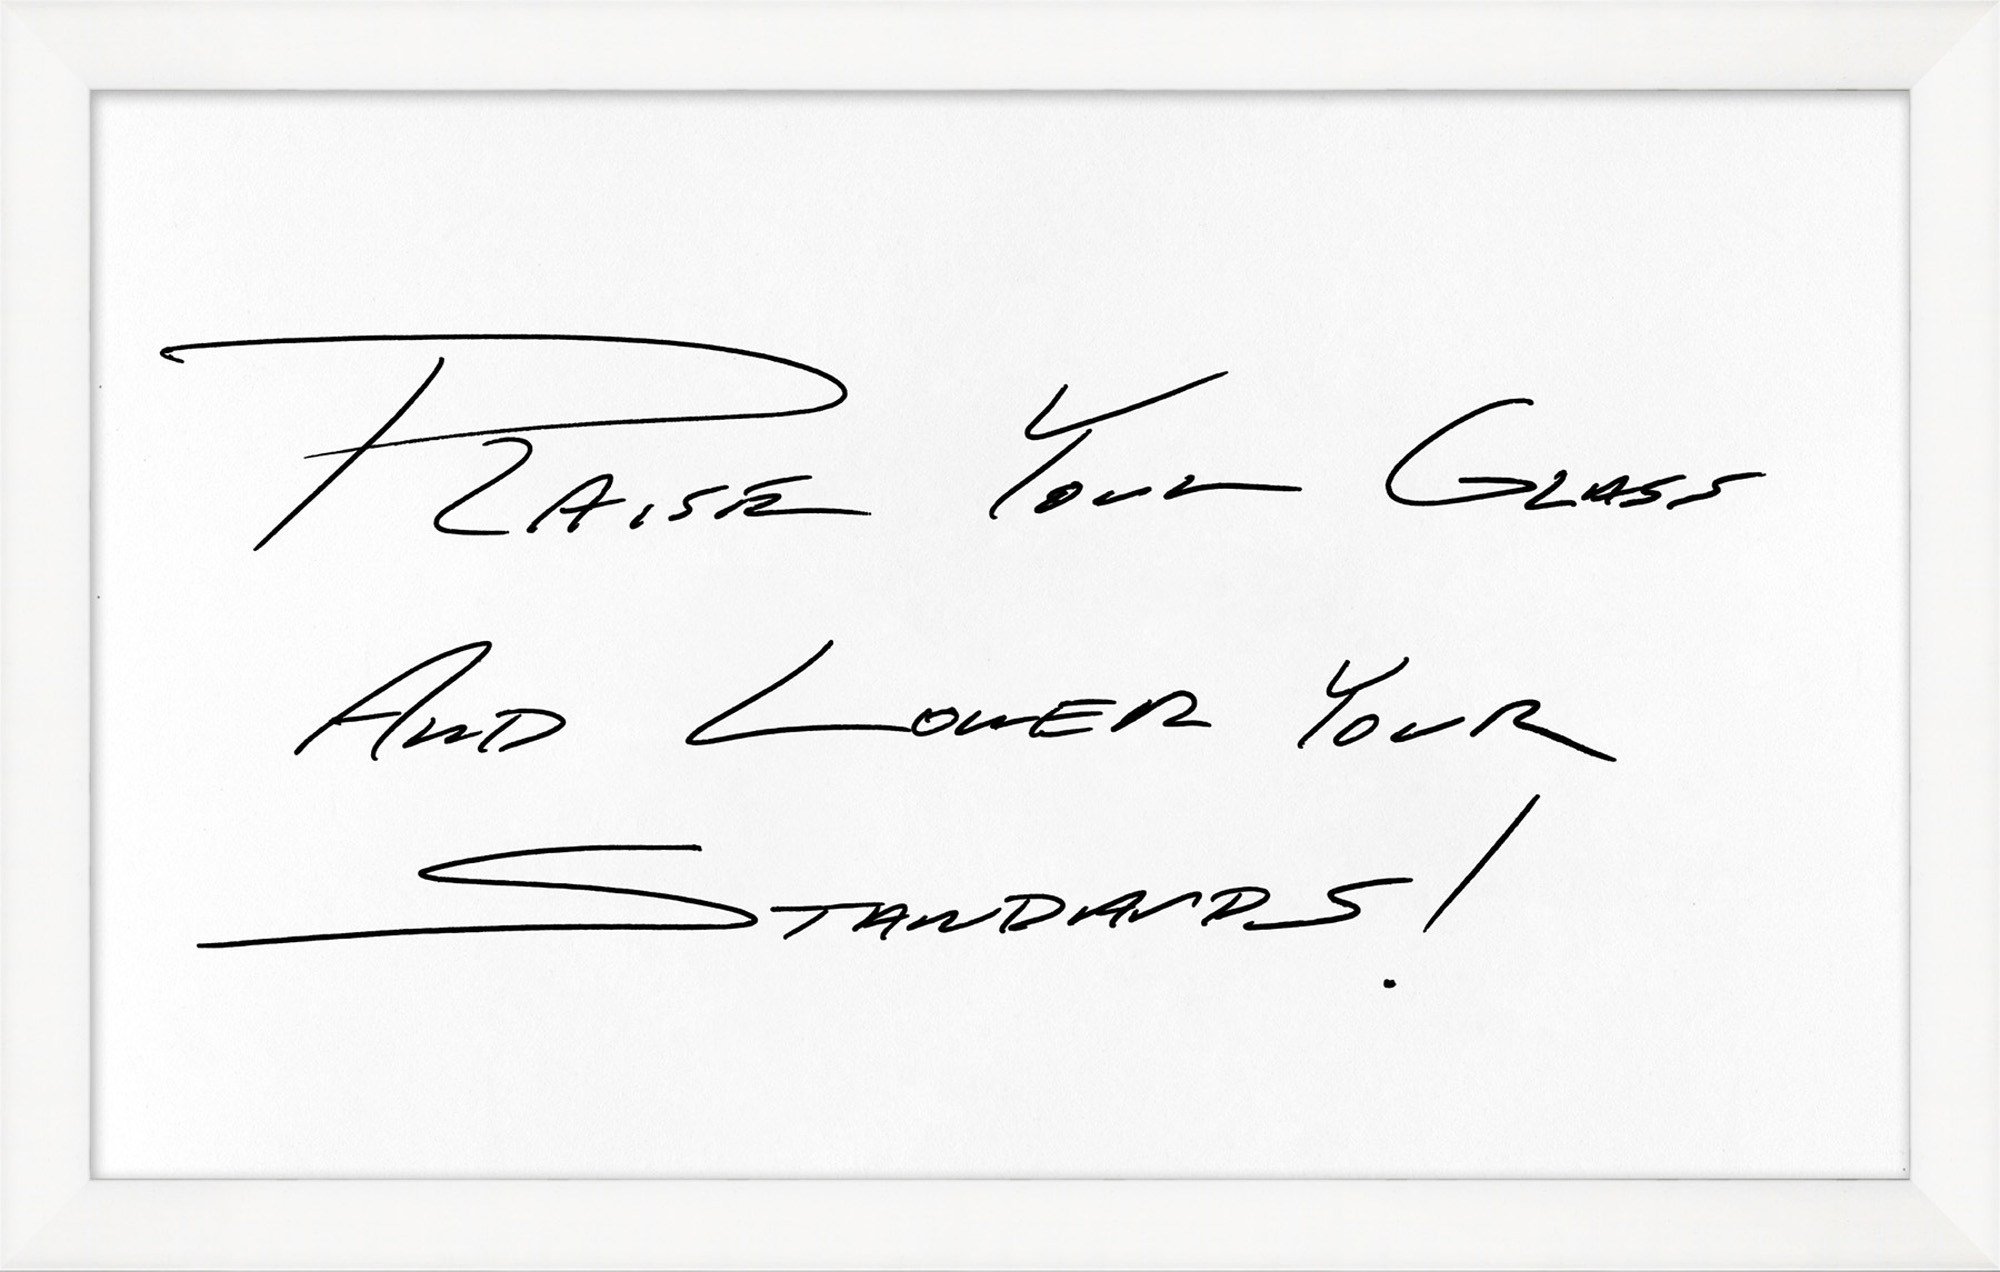 Raise Your Glass
And Lower Your
Standards!